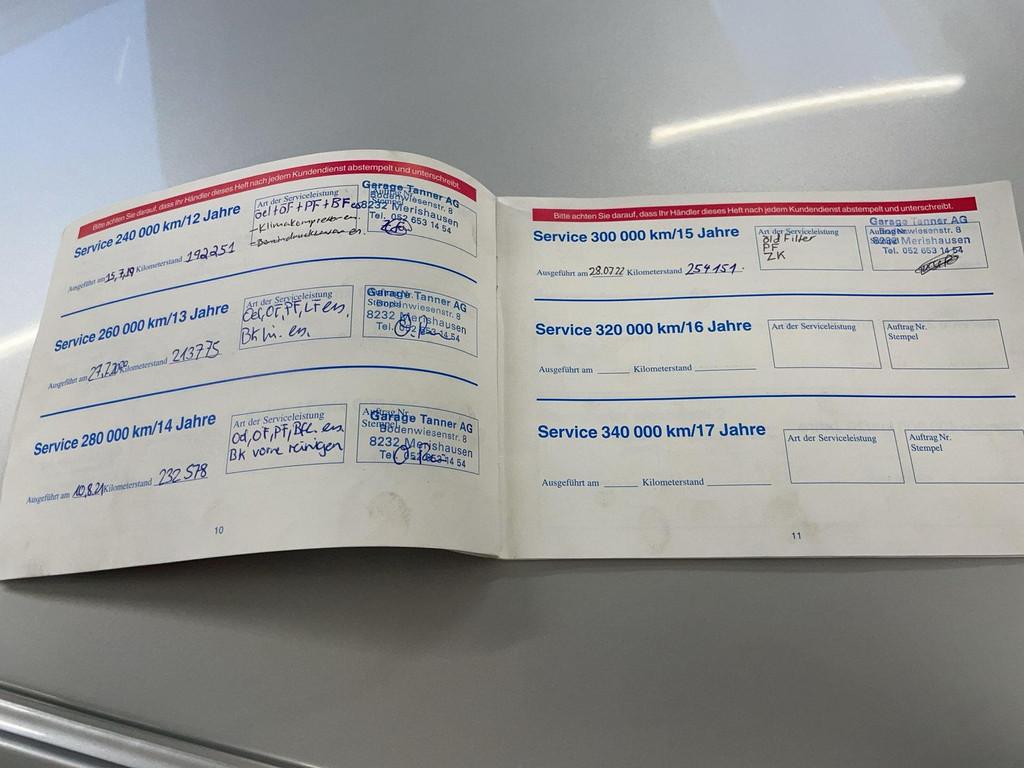 Bitte achten Sie darauf, dass Ihr Händler dieses Heft nach jedem Kundendienst abstempelt und unterschreibt.
Service 240 000 km/12 Jahre
Art der Serviceleistung
Oel+OF+PF+BF es
- Klimakompressor en.
Garage Tanner AG
Bodenwiesenstr. 8
8232 Merishausen
Tel. 052 653 14 54
Ausgeführt am 15.7.19 Kilometerstand 192251
Service 260 000 km/13 Jahre
Art der Serviceleistung
Oel, OF, PF, LF en.
BK hi. en.
Auftrag Nr.
Stempel
Garage Tanner AG
Bodenwiesenstr. 8
8232 Merishausen
Tel. 052 653 14 54
Ausgeführt am 27.7.2020 Kilometerstand 213775
Service 280 000 km/14 Jahre
Art der Serviceleistung
Oel, OF, PF, BFl. en.
BK vorne reinigen
Auftrag Nr.
Stempel
Garage Tanner AG
Bodenwiesenstr. 8
8232 Merishausen
Tel. 052 653 14 54
Ausgeführt am 10.8.21 Kilometerstand 232578
10
Bitte achten Sie darauf, dass Ihr Händler dieses Heft nach jedem Kundendienst abstempelt und unterschreibt.
Service 300 000 km/15 Jahre
Art der Serviceleistung
Filter
PF
ZK
Auftrag Nr.
Stempel
Garage Tanner AG
8232 Merishausen
Tel. 052 653 14 54
Ausgeführt am 28.07.22 Kilometerstand 254151.
Service 320 000 km/16 Jahre
Art der Serviceleistung
Auftrag Nr.
Stempel
Ausgeführt am Kilometerstand
Service 340 000 km/17 Jahre
Art der Serviceleistung
Auftrag Nr.
Stempel
Ausgeführt am Kilometerstand
11